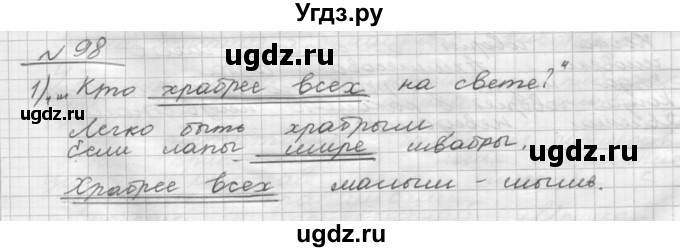 Угдз.ру
ugdz.ru ugdz.ru
№ 98
1) „... Кто храбрее всех на свете?“
Легко быть храбрым
если лапы шире швабры,
Храбрее всех малыш - мышь.
ugdz.ru
ugdz.ru ugdz.ru ugdz.ru